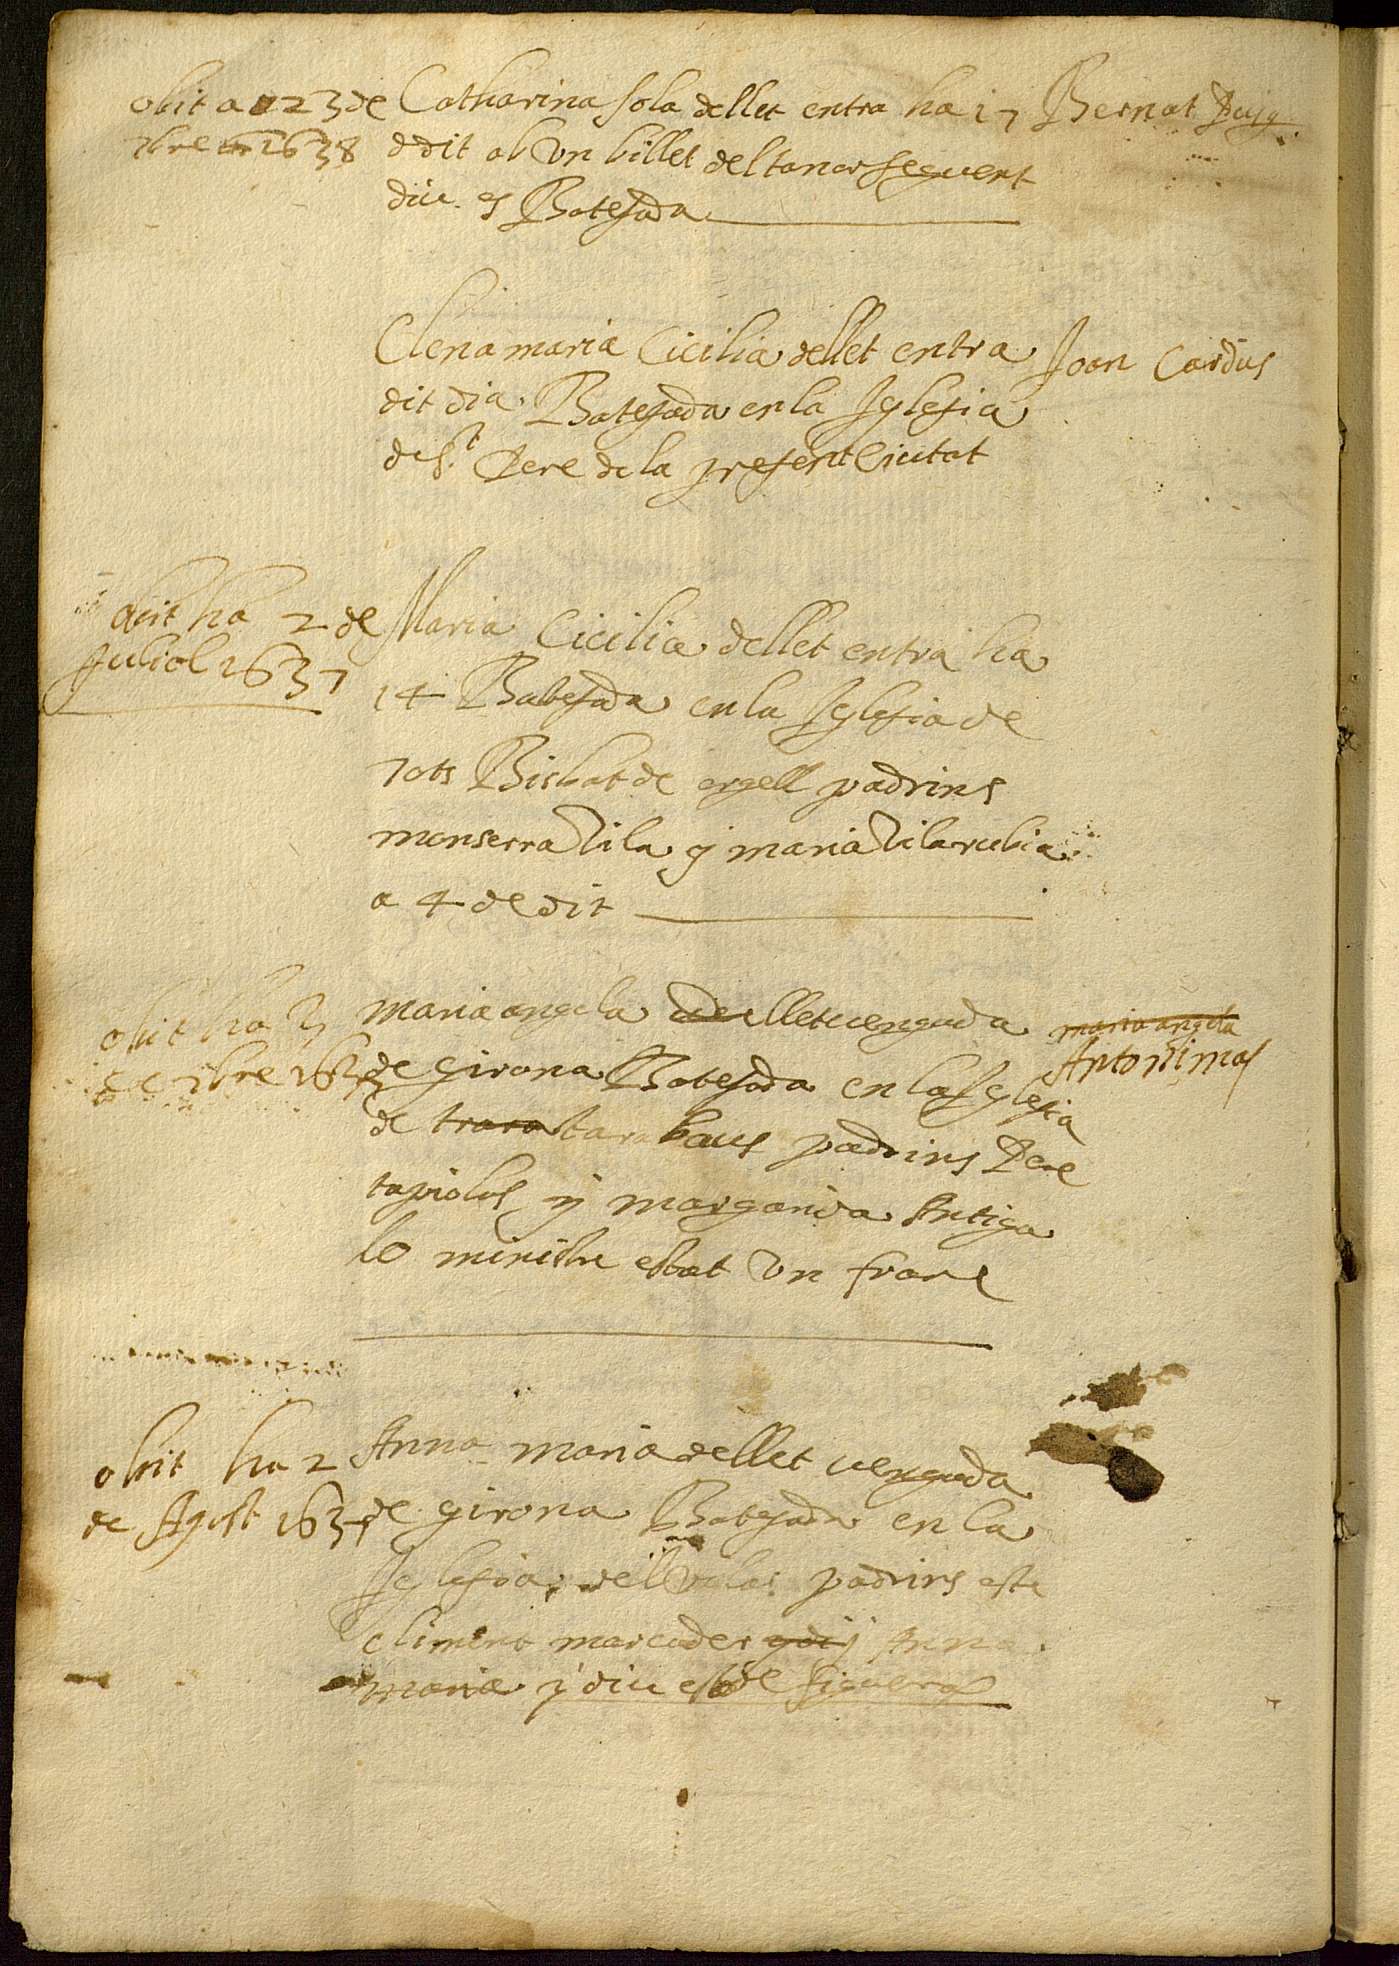 obit a 23 de
7bre 1638
Catharina sola dellet entra ha 17
d dit ab un billet del tanor seguent
diu es Batejada
Bernat Puig
Elena maria Cicilia dellet entra
dit dia Batejada en la Iglesia
de St Pere de la present Ciutat
Joan Cardus
obit ha 2 de
Juliol 1637
Maria Cicilia dellet entra ha
14 Batejada en la Iglesia de
Tots Bisbat de urgell padrins
monserra Vila y maria Vilarubia
a 4 de dit
obit ha
de 7bre 163
maria angela dellet venguda
de girona Batejada en la Iglesia
de trara tarabaus padrins Pere
tapiolas y margarida Antiga
lo ministre estat un frare
maria angela
Antoni mas
obit ha 2
de Agost 1637
Anna maria dellet venguda
de girona Batejada en la
Iglesia del padrins este
climent marcader y Anna
maria y diu es de figueras